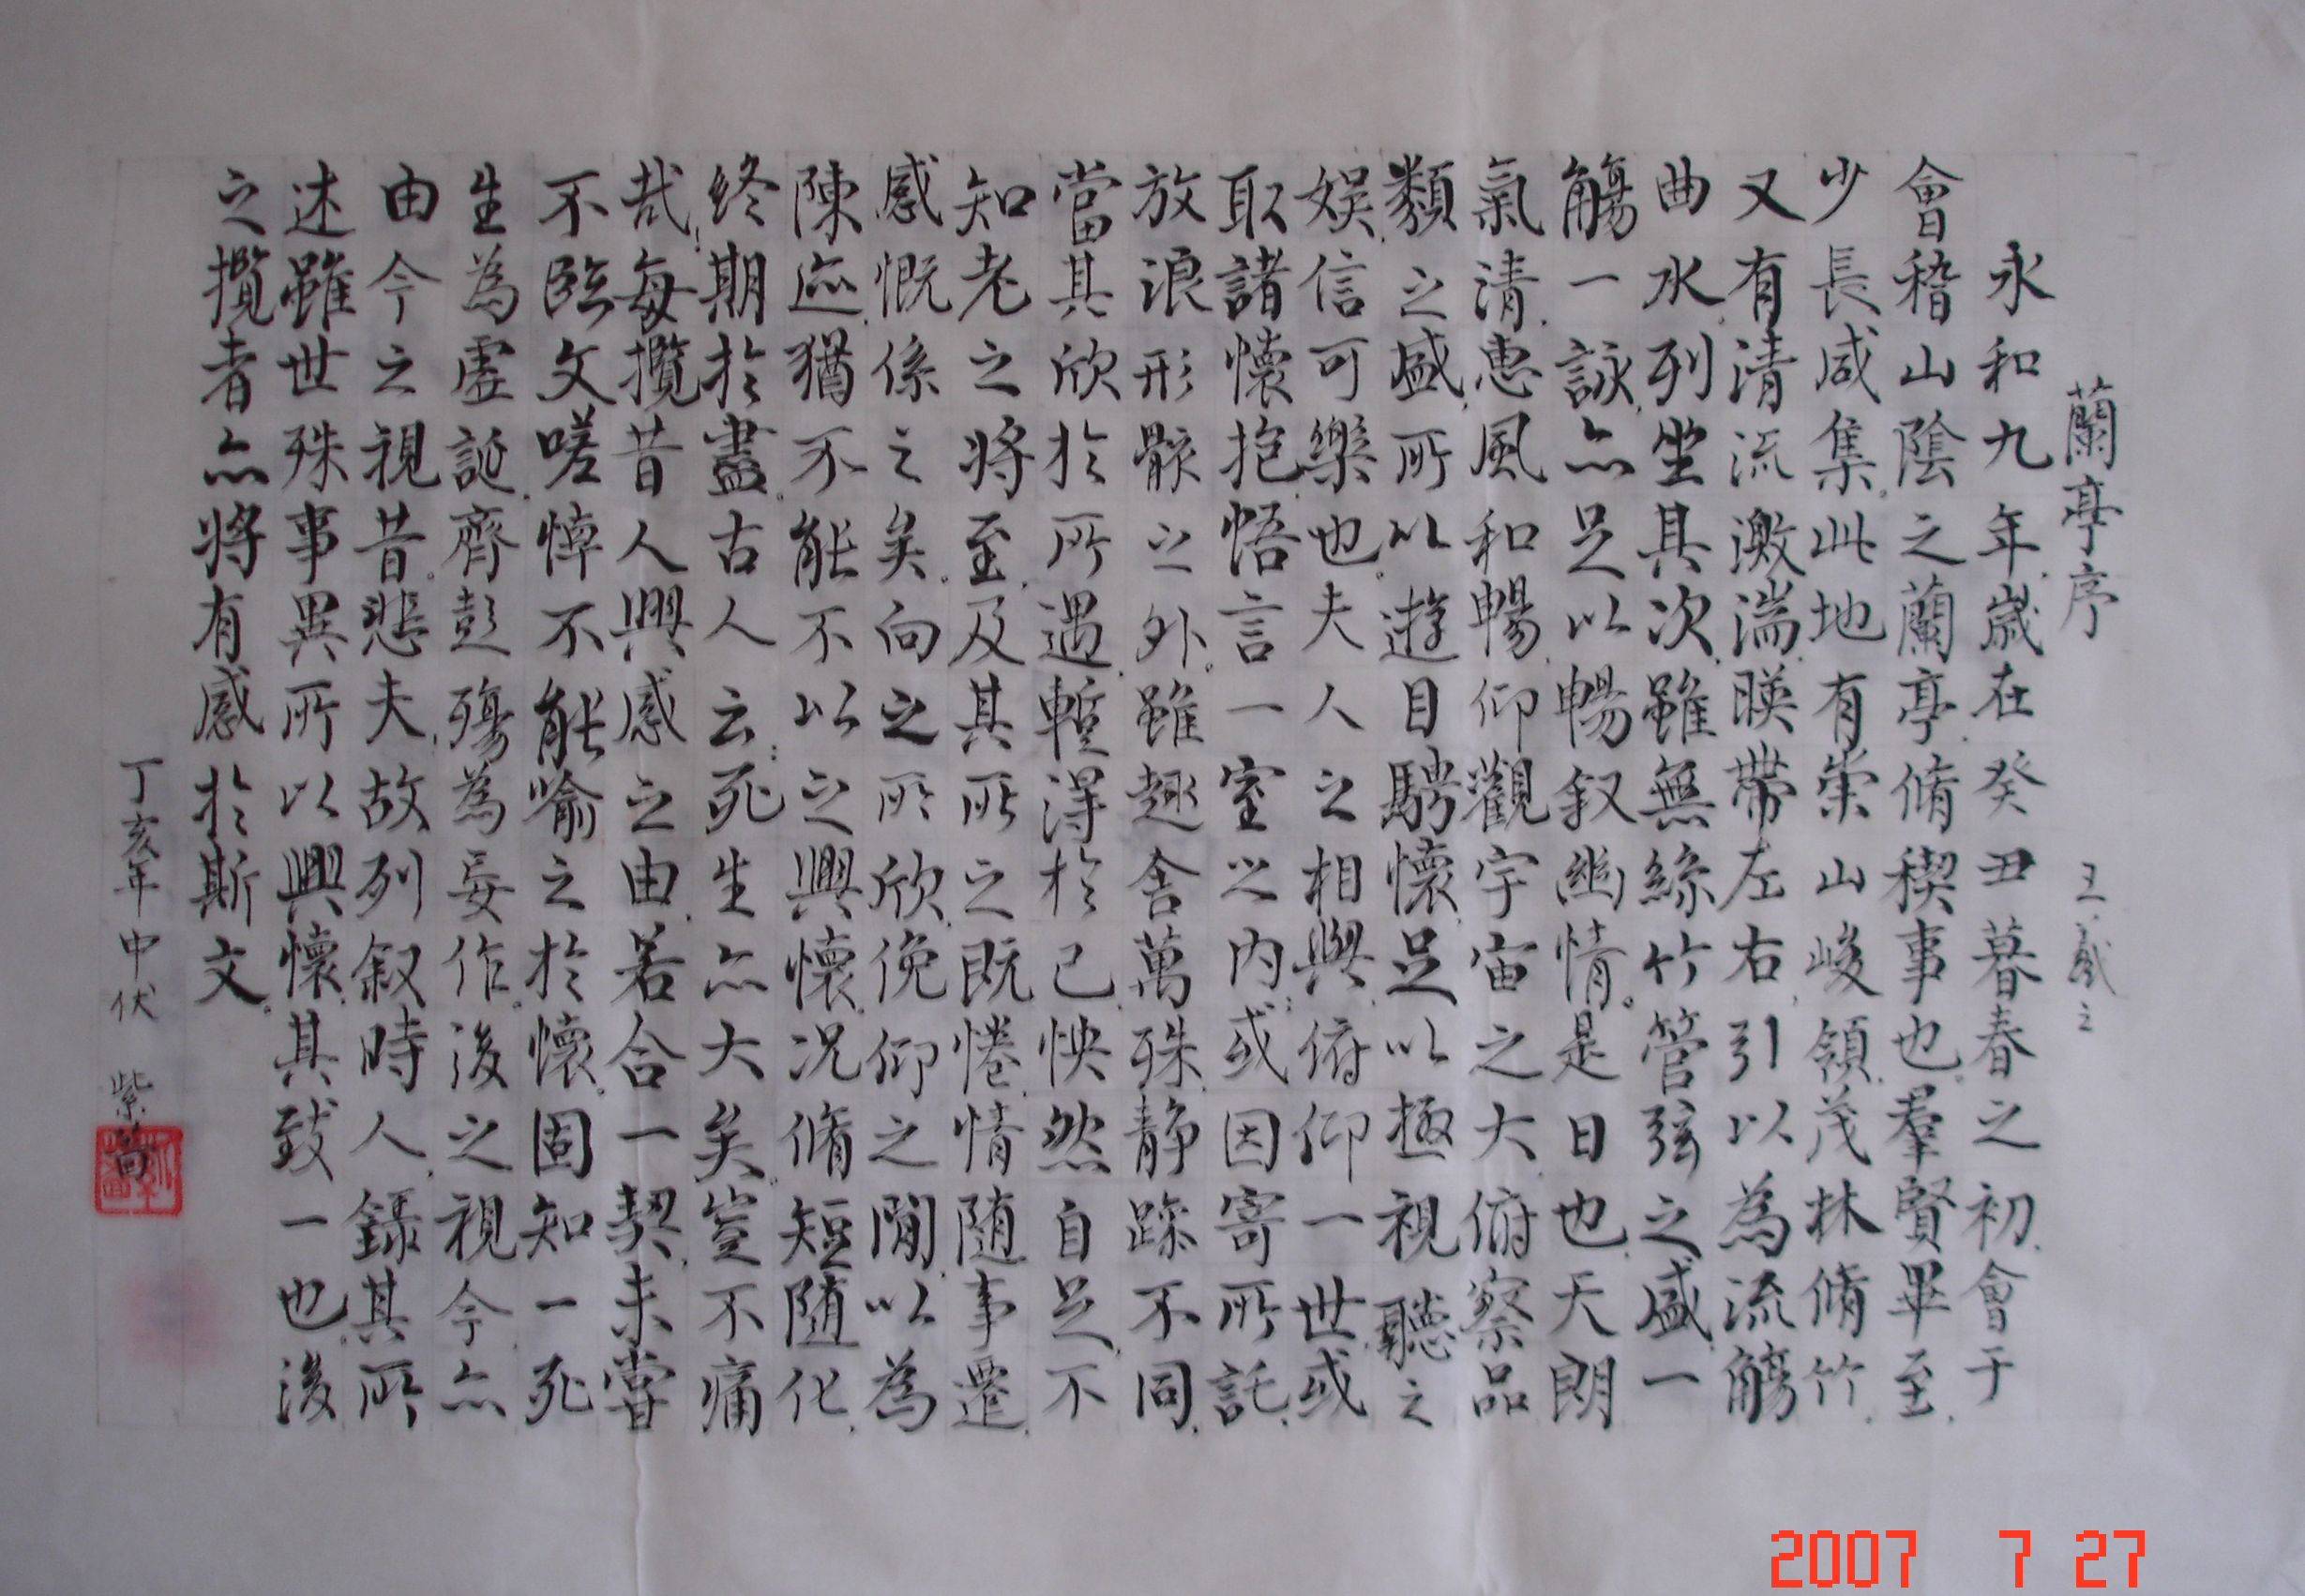 蘭亭序 王羲之
永和九年歲在癸丑暮春之初會于
會稽山陰之蘭亭脩稧事也羣賢畢至
少長咸集此地有崇山峻領茂林脩竹
又有清流激湍暎帶左右引以為流觴
曲水列坐其次雖無絲竹管弦之盛一
觴一詠亦足以暢叙幽情是日也天朗
氣清惠風和暢仰觀宇宙之大俯察品
類之盛所以遊目騁懷足以極視聽之
娛信可樂也夫人之相與俯仰一世或
取諸懷抱悟言一室之內或因寄所託
放浪形骸之外雖趣舍萬殊静踈不同
當其欣於所遇蹔得於己怏然自足不
知老之將至及其所之既惓情随事遷
感慨係之矣向之所欣俛仰之閒以為
陳迹猶不能不以之興懷況脩短随化
終期於盡古人云死生亦大矣豈不痛
哉每攬昔人興感之由若合一契未嘗
不臨文嗟悼不能喻之於懷固知一死
生為虛誕齊彭殤為妄作後之視今亦
由今之視昔悲夫故列叙時人錄其所
述雖世殊事異所以興懷其致一也後
之攬者亦將有感於斯文
丁亥年中伏 紫
2007 7 27